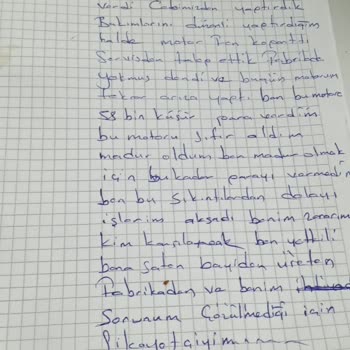 verdi Cebimizden yaptırdık
Bakımlarını düzenli yaptırdığım
halde motor
Servisden talep ettik Fabrikada
yokmuş dendi ve bugün motorum
tekrar arıza yaptı ben bu motora
58 bin küsür para verdim
bu motoru sıfır aldım
madur oldum ben madur olmak
için bu kadar parayı vermedim
ben bu sıkıntılardan dolayı
işlerim aksadı benim zararımı
kim karşılayacak ben yetkili
bana satan bayiden üreten
Fabrikadan ve benim
Sorunum Çözülmediği için
Şikayetçiyim